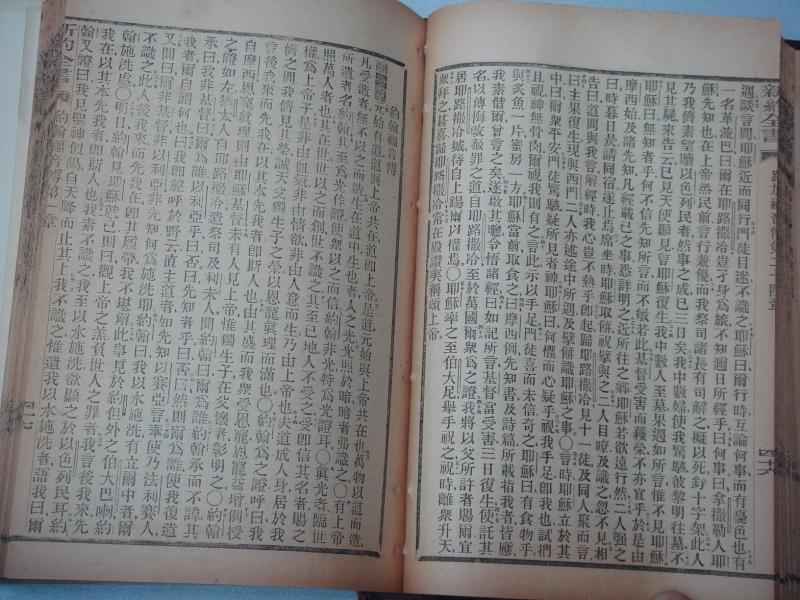 新約全書 路加福音傳第二十四章 四十六
遇談言間耶穌近而同行門徒目迷不識之耶穌曰爾行時互論何事而有憂色也有
一名革流巴曰爾在耶路撒冷豈孑身爲旅不知邇日所歷乎曰何事曰拿撒勒人耶
穌先知也在上帝曁民前言行兼優而我祭司諸長有司解之擬以死釘十字架此人
乃我儕素望贖以色列民者然事之成已三日矣我中數婦使我驚駭彼黎明往墓不
見其屍來告云已見天使顯見言耶穌復生我中數人至墓果遇如所言惟不見耶穌
耶穌曰無知者乎何不信先知所言而不敏若此基督受害而獲榮不亦宜乎於是由
摩西始及諸先知凡經載已之事悉詳明之近所往之鄉耶穌若欲遠行然二人强之
曰時暮日昃請同宿遂止焉席坐時耶穌取餅祝擘與之二人目瞭及識之忽不見相
告曰道間與我言解經時我心豈不熱乎卽起歸耶路撒冷見十一徒及同人聚而言
曰主果復生現與西門二人亦述途中所遇及擘餅識耶穌之事〇言時耶穌立於其
中曰爾曹安門徒驚駭疑所見者神耶穌曰何懼而心疑乎視我手足卽我也試捫
且視神無骨肉爾視我則有之言此示以手足門徒喜而未信奇之耶穌曰有食物乎
與炙魚一片蜜房一方耶穌當前取食之曰摩西例先知書及詩篇所載指我者皆應
我素偕爾曾言之矣遂啟其聰令悟諸經曰如記所言基督當受害三日復生使託其
名以傳悔改赦罪之道自耶路撒冷至於萬國爾衆爲之證我將以父所許者賜爾宜
居耶路撒冷城待自上錫爾以權焉〇耶穌率之至伯大尼舉手祝之祝時離衆升天
衆拜之甚喜歸耶路撒冷常在殿讚美稱頌上帝
約翰福音傳
第一章元始有道道與上帝共在道卽上帝是道元始與上帝共在也萬物以道而造
凡受造者無不以之而造生在道中生也者人之光光照於暗暗者弗識之〇有上帝
所遣者名約翰其至爲光作證使衆以之而信約翰非光特爲光證耳〇眞光者臨世
照萬人者也其在世世以之而創世不識之其至已地人不受之受卽信其名者賜之
權爲上帝子是非由血氣非由情欲非由人意而生乃由上帝也夫道成人身居於我
儕之間我儕見其榮誠天父獨生子之榮以恩寵眞理而滿也〇約翰爲之證呼曰我
言後我來而先我在以其本先我者卽斯人也由其盛而我衆受恩寵恩寵益增例授
自摩西恩寵眞理則由耶穌基督未有人見上帝惟獨生子在父懷者彰明之〇約翰
之證如左猶太人自耶路撒冷遣祭司及利未人問約翰曰爾爲誰約翰承而不諱其
承曰我非基督曰爾爲誰以利亞乎曰否曰先知者乎曰否曰然則爾爲誰使我復遣
我者爾自謂何也曰我卽聲呼於野云直主道者如先知以賽亞言奉使乃法利賽人
又問曰爾非基督非以利亞非先知何爲施洗耶約翰曰我以水施洗有立爾中者爾
不識之此人後我來而先我在卽其履帶我不堪解此事見於約但外之伯大巴喇約
翰施洗處〇明日約翰見耶穌就已則曰觀上帝之羔負世人之罪者我言後我來先
我在以其本先我者卽斯人也我素不識之我至以水施洗欲顯之於以色列民耳約
翰又證曰我見聖神似鴿自天降而止其上我不識之惟遣我以水施洗者語我曰爾
新約全書 約翰福音傳第一章 四十七